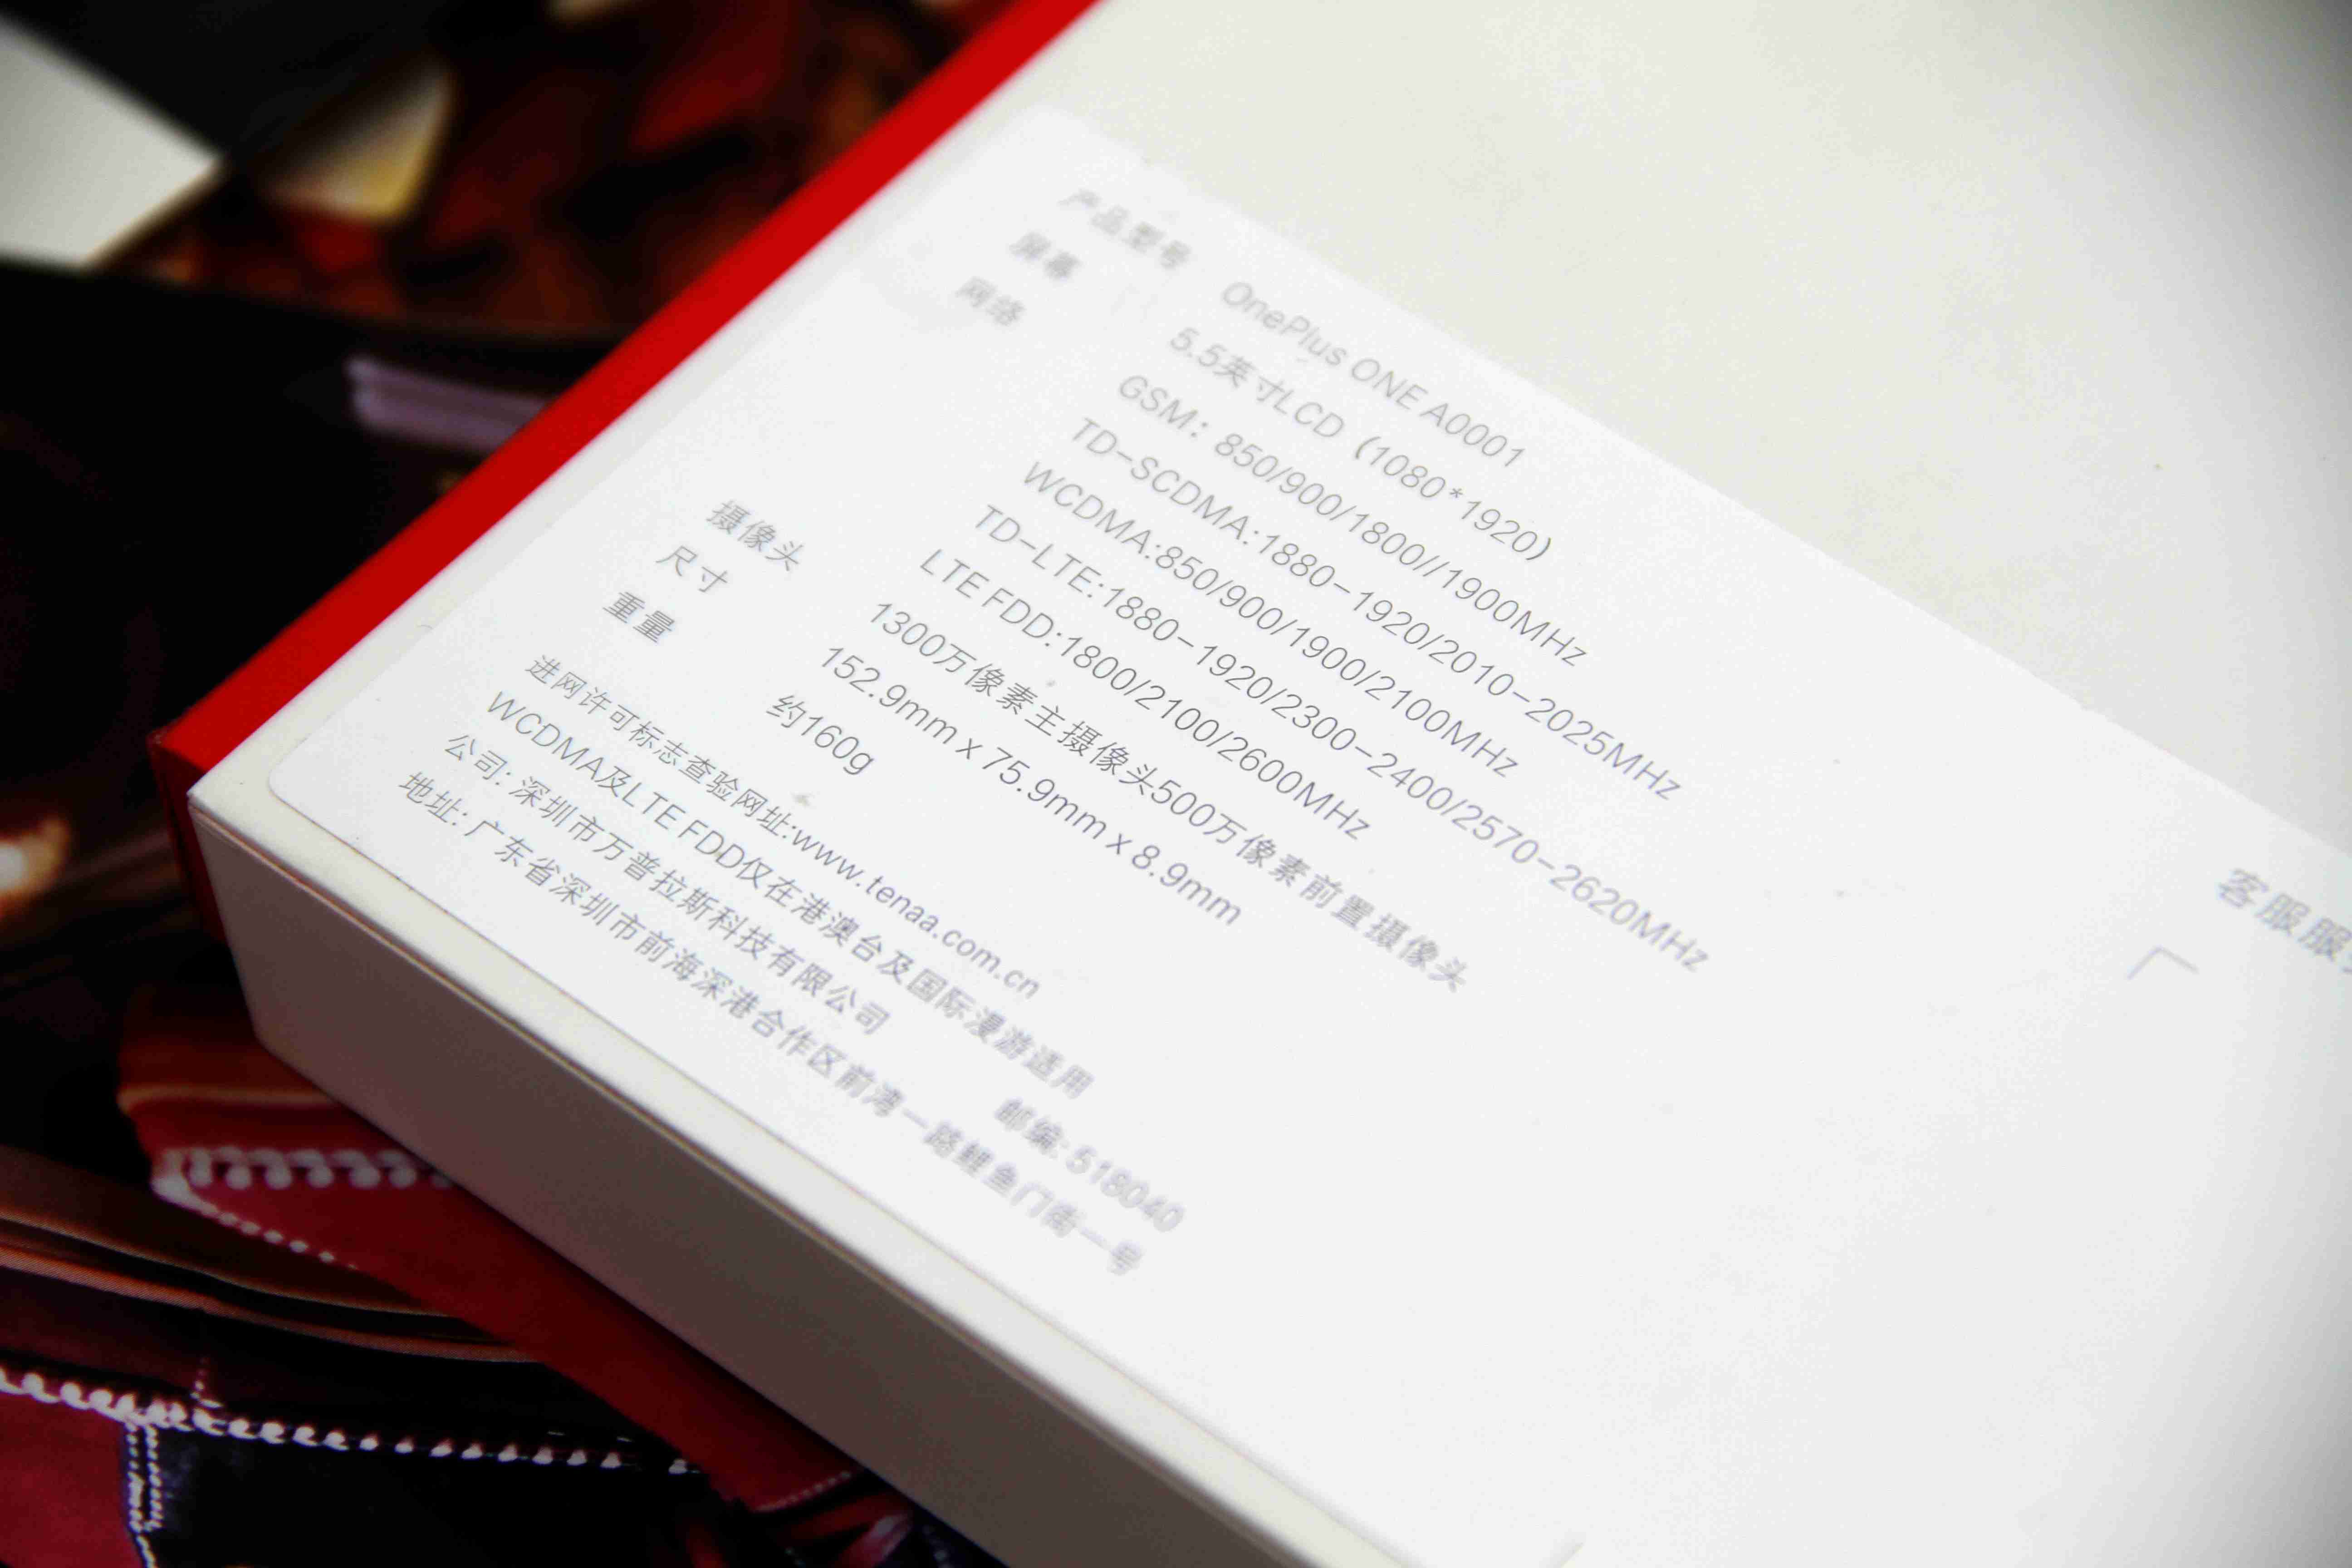 产品型号 OnePlus ONE A0001
屏幕 5.5英寸LCD（1080*1920）
网络 GSM：850/900/1800//1900MHz
TD-SCDMA:1880-1920/2010-2025MHz
WCDMA:850/900/1900/2100MHz
TD-LTE:1880-1920/2300-2400/2570-2620MHz
LTE FDD:1800/2100/2600MHz
摄像头 1300万像素主摄像头500万像素前置摄像头
尺寸 152.9mm x 75.9mm x 8.9mm
重量 约160g
进网许可标志查验网址:www.tenaa.com.cn
WCDMA及LTE FDD仅在港澳台及国际漫游适用
公司: 深圳市万普拉斯科技有限公司 邮编: 518040
地址: 广东省深圳市前海深港合作区前湾一路鲤鱼门街一号
客服服